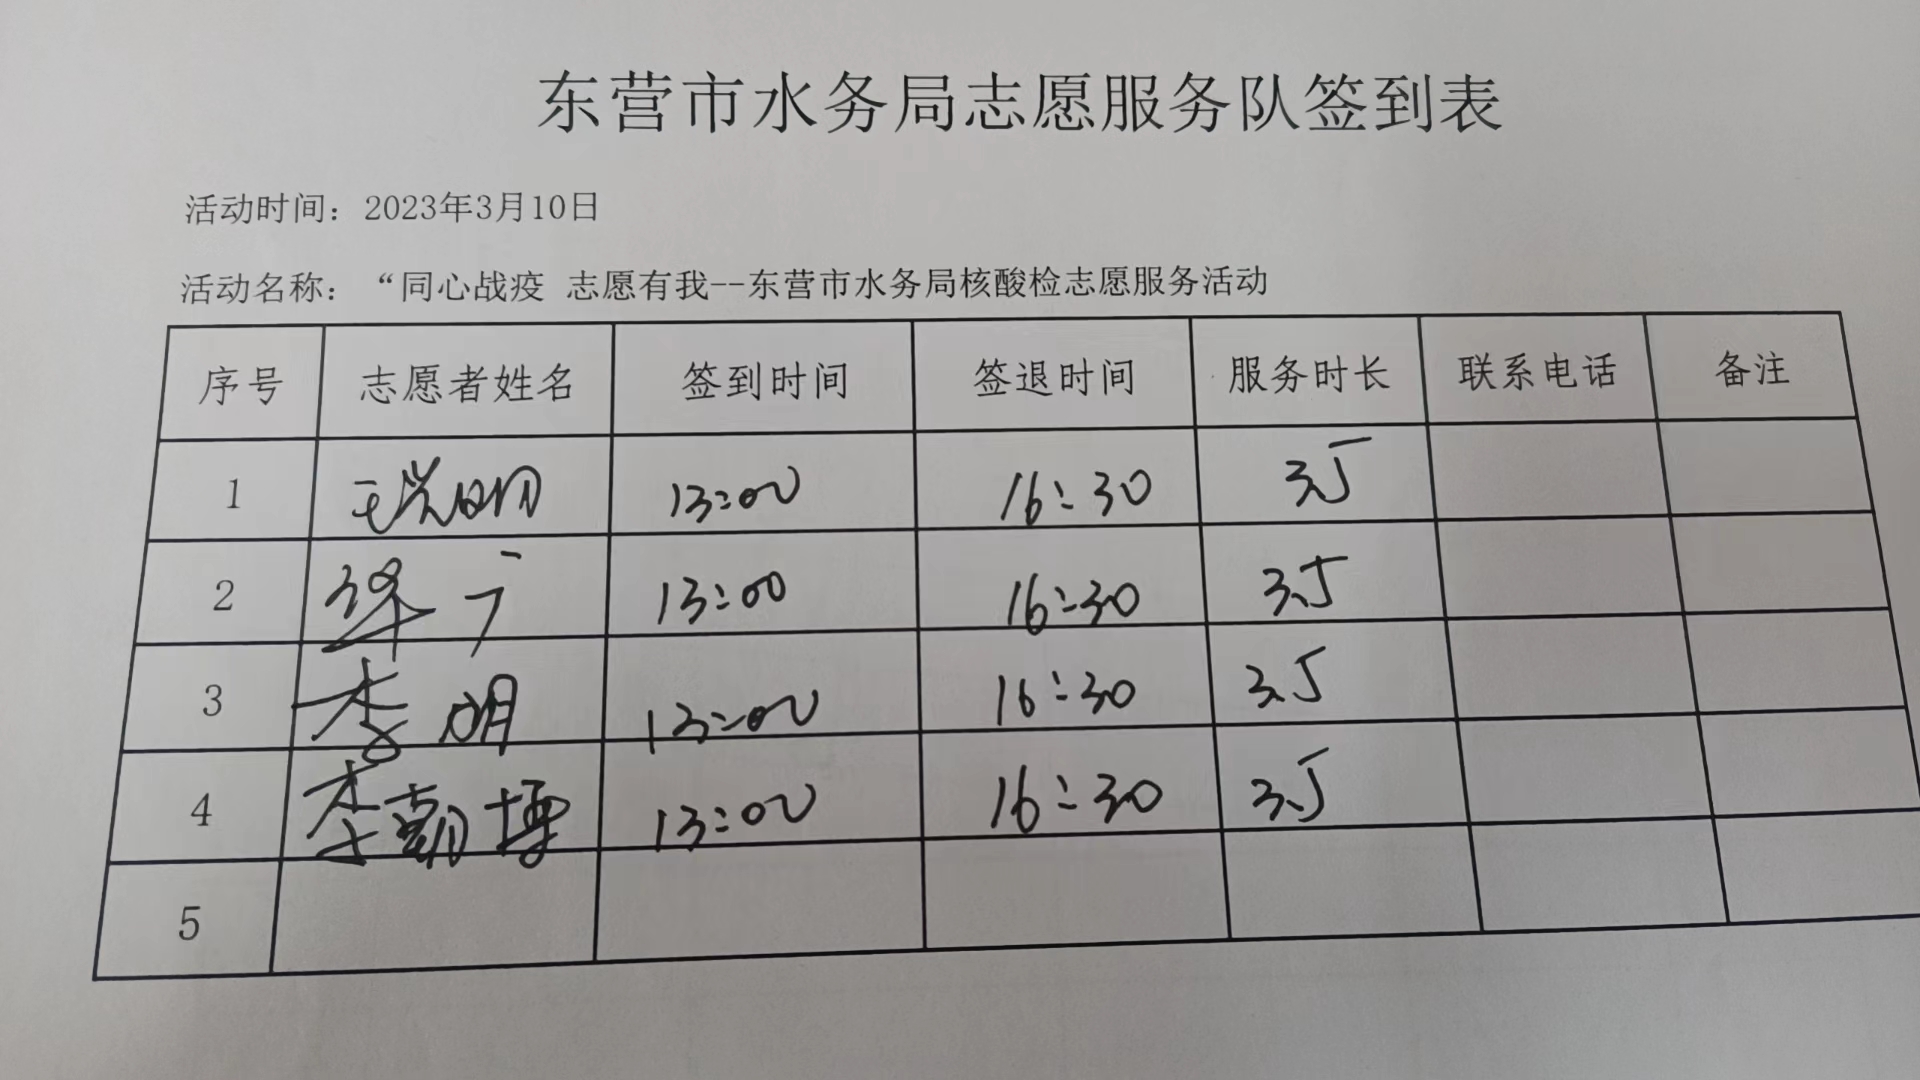 东营市水务局志愿服务队签到表
活动时间：2023年3月10日
活动名称：“同心战疫 志愿有我--东营市水务局核酸检志愿服务活动
序号 志愿者姓名 签到时间 签退时间 服务时长 联系电话 备注
1 13:00 16:30 3.5
2 13:00 16:30 3.5
3 李明 13:00 16:30 3.5
4 李朝博 13:00 16:30 3.5
5